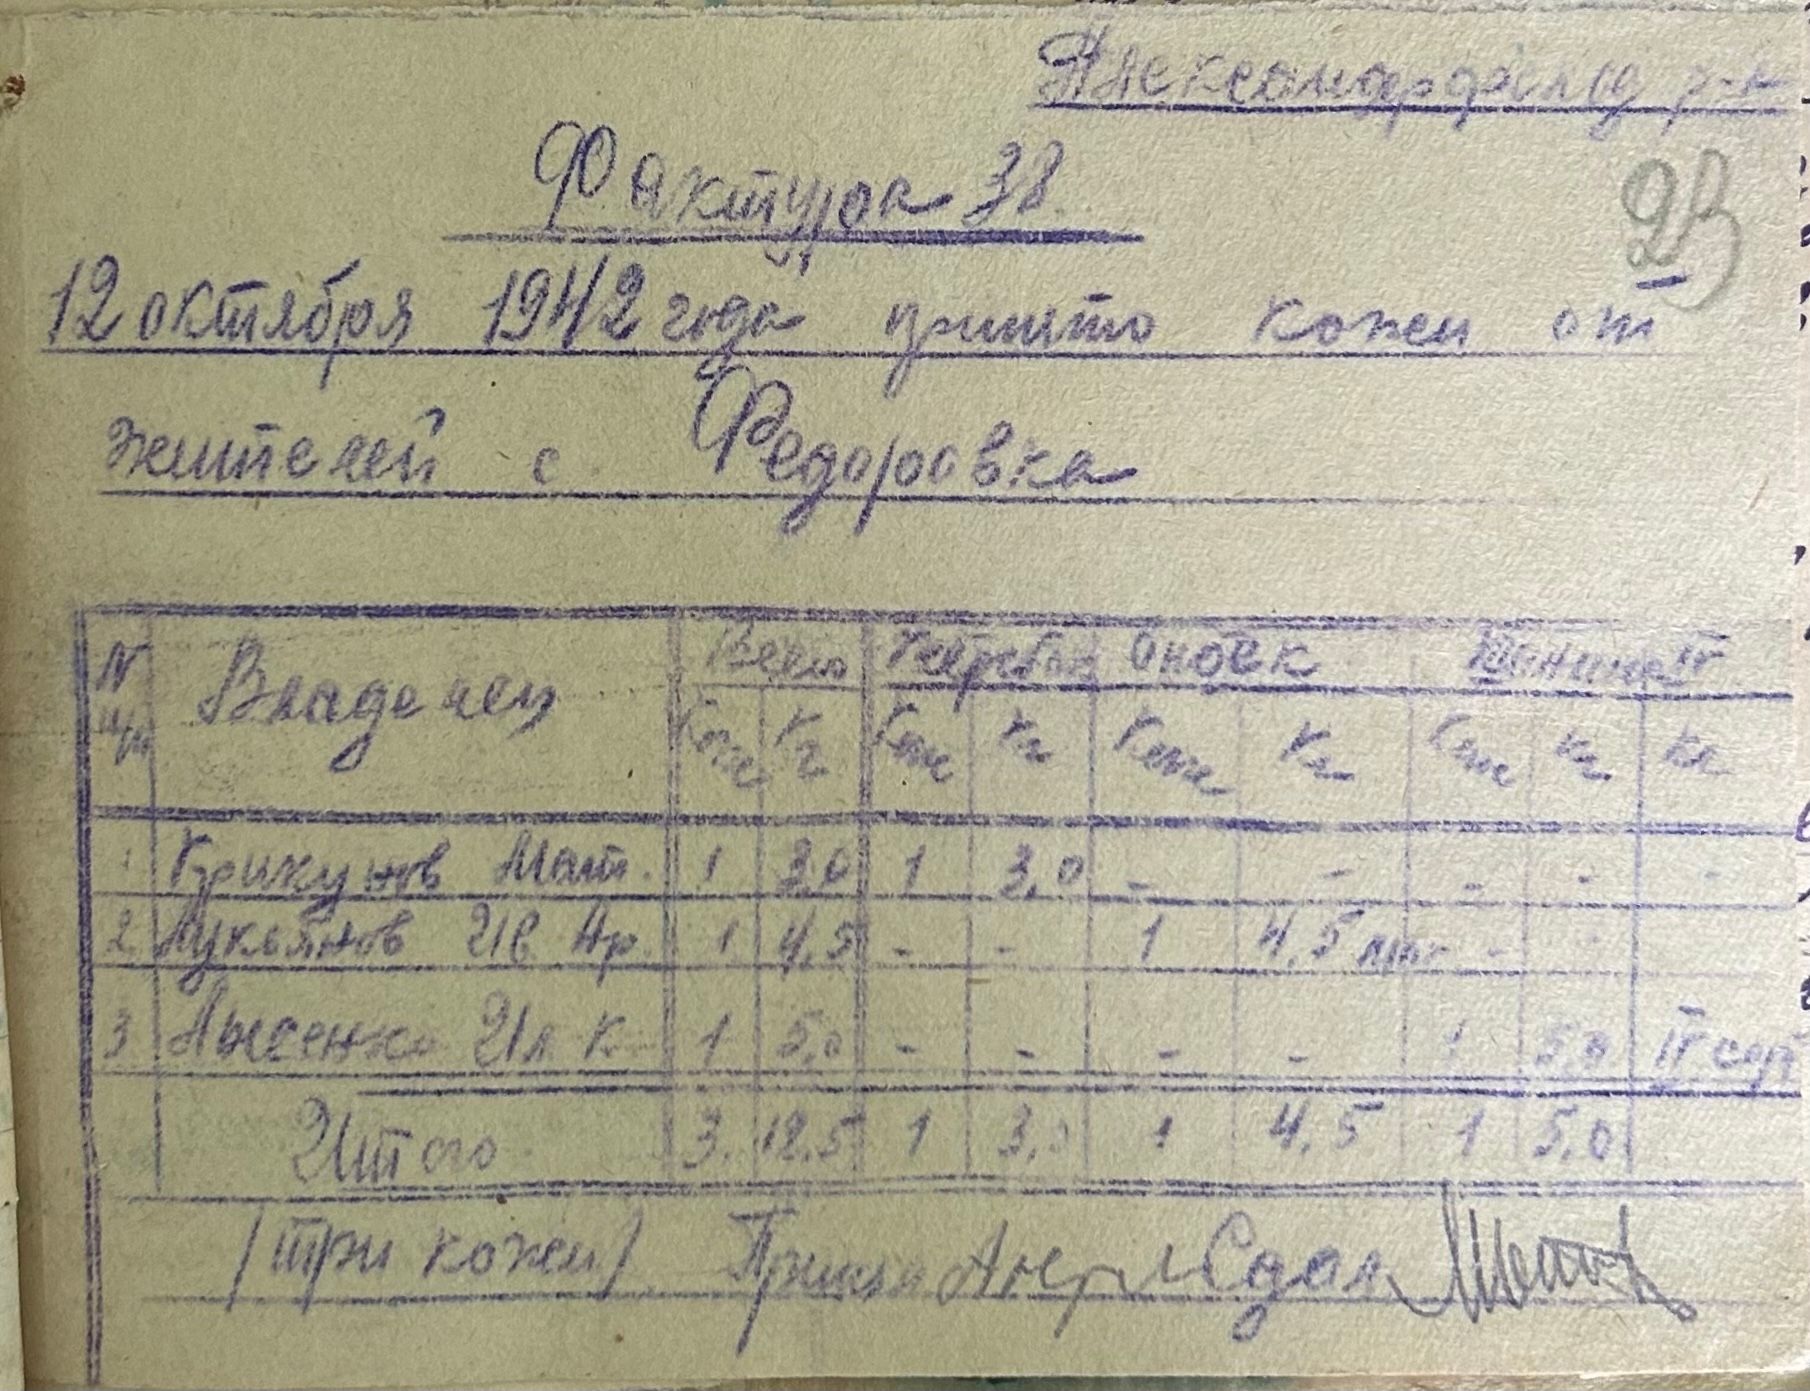 Александрфельд р-н
Фактура 38
23
12 октября 1942 года принято кожи от
жителей с. Федоровка
N п/п Владелец Всего Жеребок Опоек IV
Кож Кг Кож Кг Кож Кг Кож кг кг
1 Крикунов Мат. 1 3,0 1 3,0 - - - - -
2 Лукьянов Ив. Ар. 1 4,5 - - 1 4,5 - -
3 Лысенко Ил К 1 5,0 - - - - 1 5,0 IV сорт
Итого 3. 12,5 1 3,0 1 4,5 1 5,0
/три кожи/ Принял Сдал